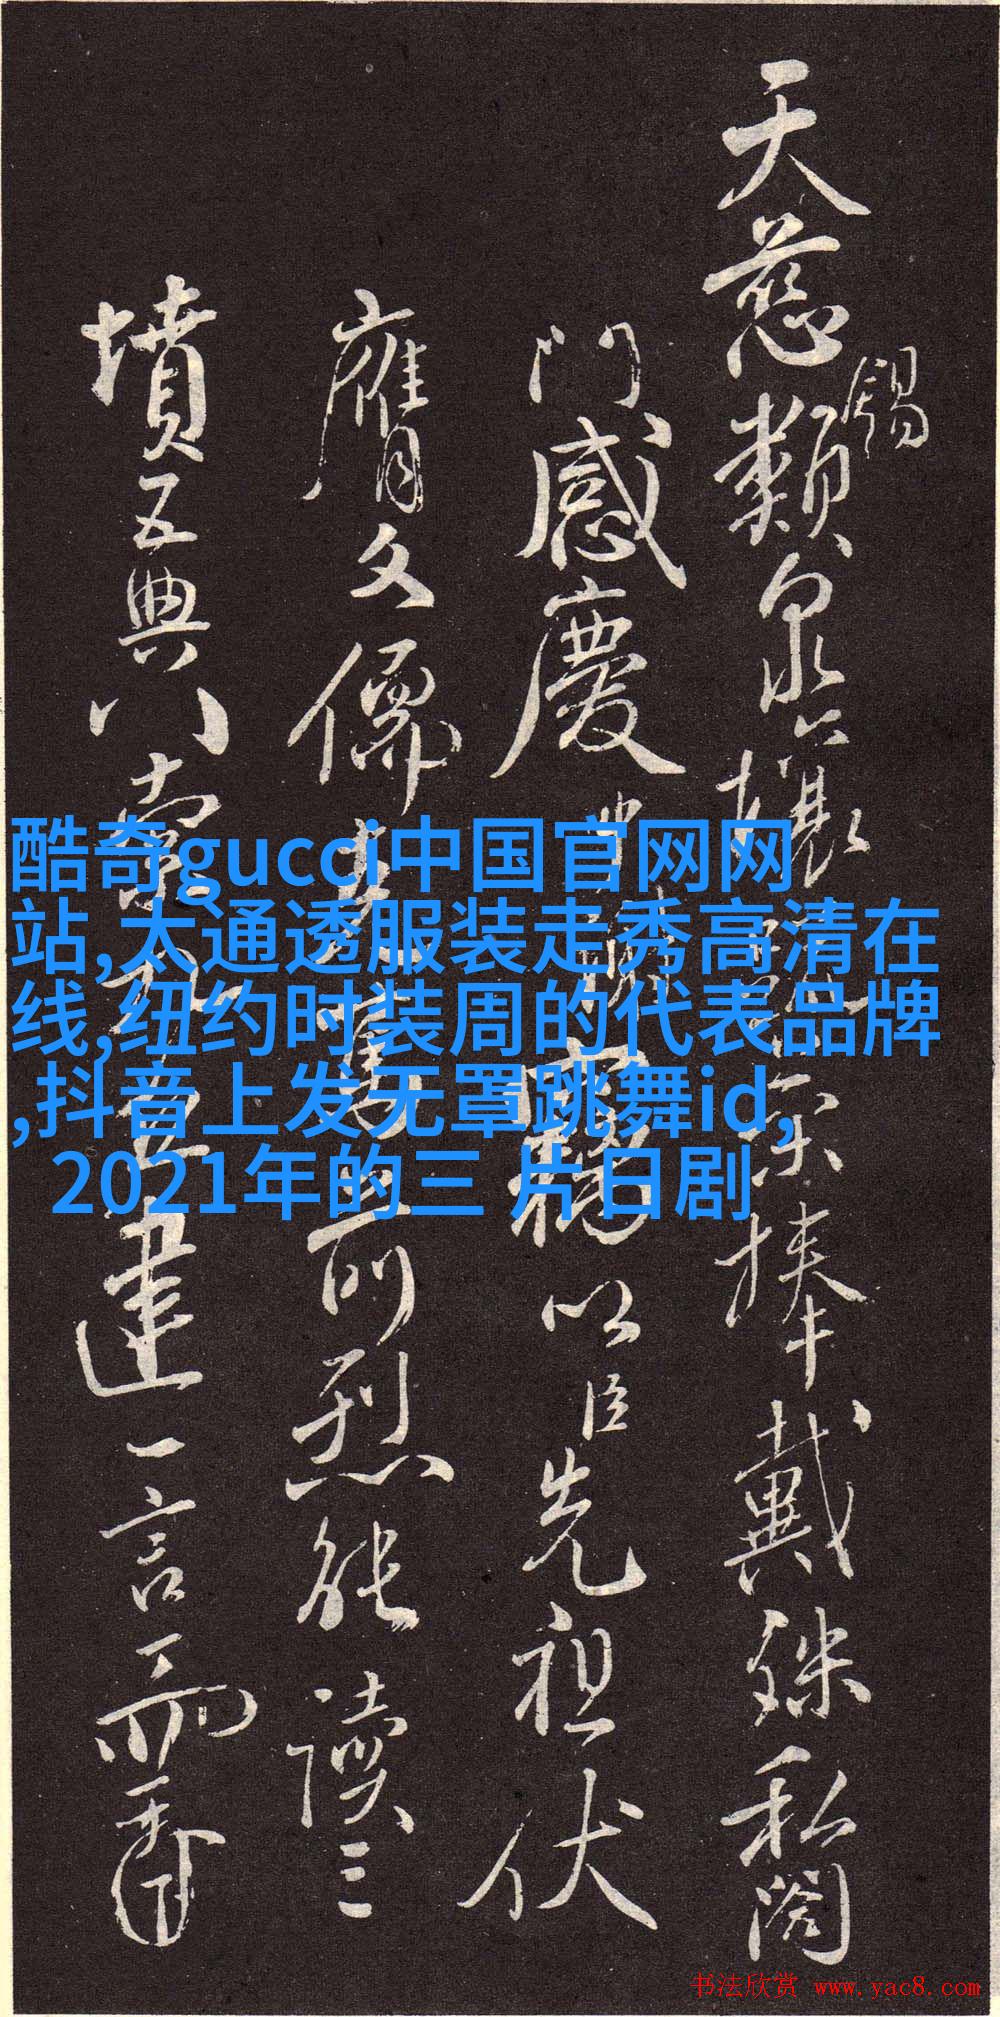 天慈類錫泉捧戴殊私闔
門感慶以臣先祖伏
膺文儒能讀三
墳五典八索九丘建一言
酷奇gucci中国官网网
站,太通透服装走秀高清在
线,纽约时装周的代表品牌
,抖音上发无罩跳舞id,
2021年的三 片日剧
书法欣赏 www.yac8.com